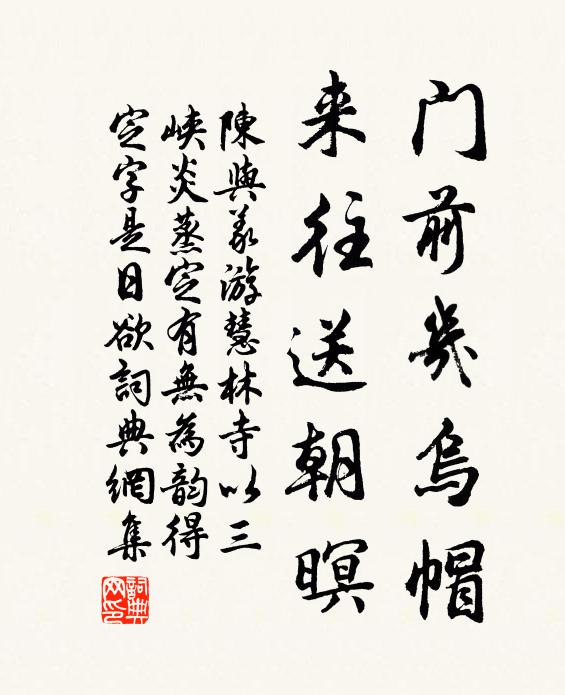 门前幾烏帽
来往送朝暝
陳與義游慧林寺以三
峡炎蒸定有無為韵得
定字是日欲詞典網集
詞典網印